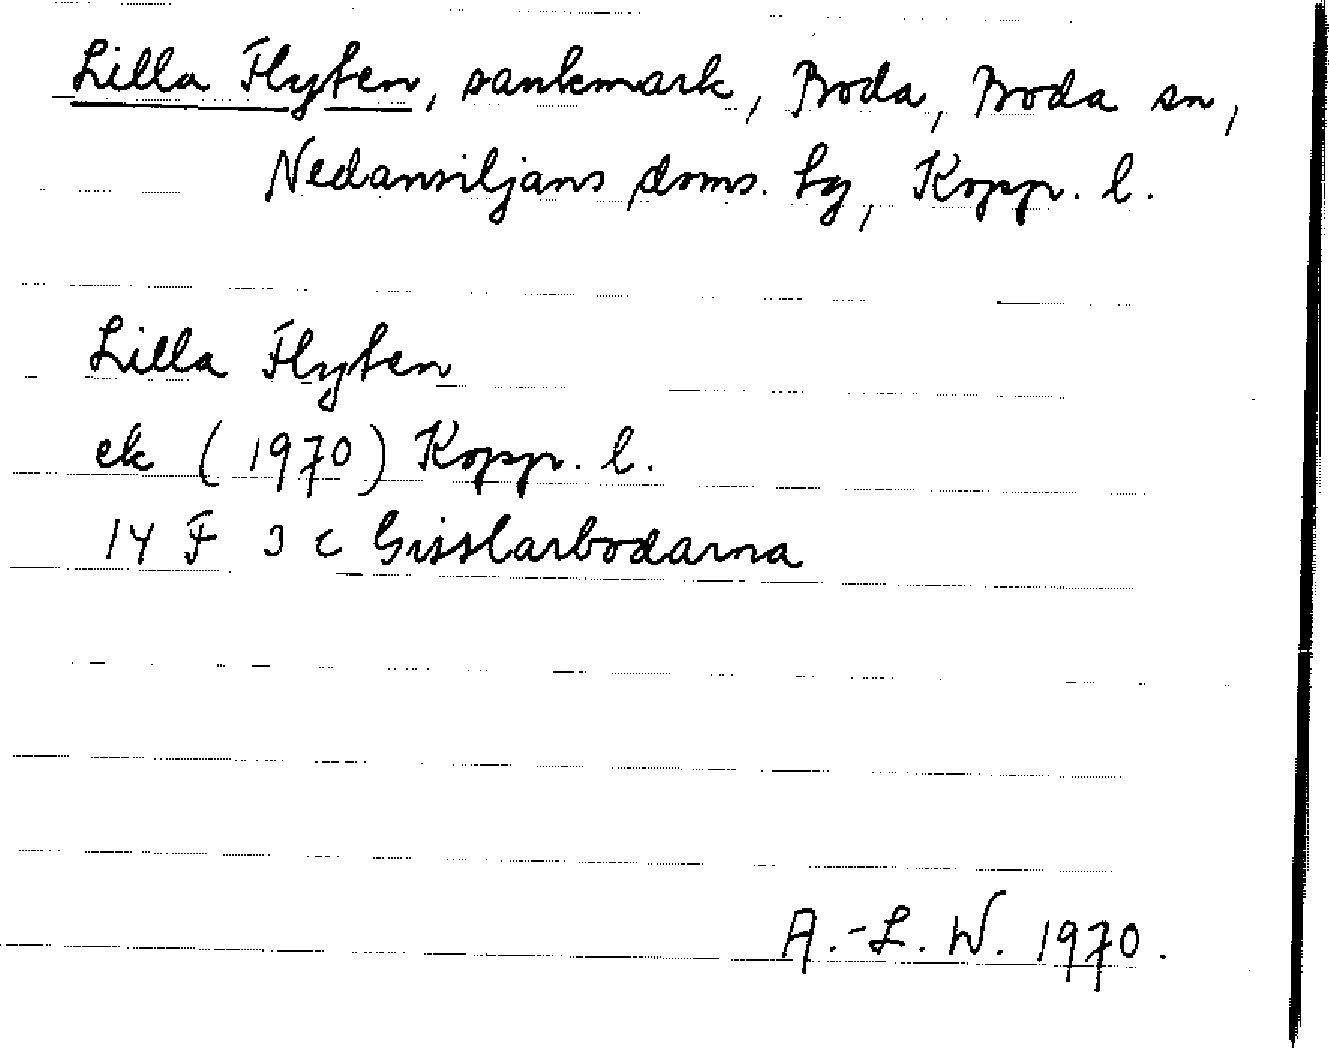 Lilla Flyten, sankmark, Boda, Boda sn,
Nedansiljans doms. tg, Kopp. l.
Lilla Flyten
ek (1970) Kopp. l.
14 F 3 c Gisslarbodarna
A.-L. W. 1970.